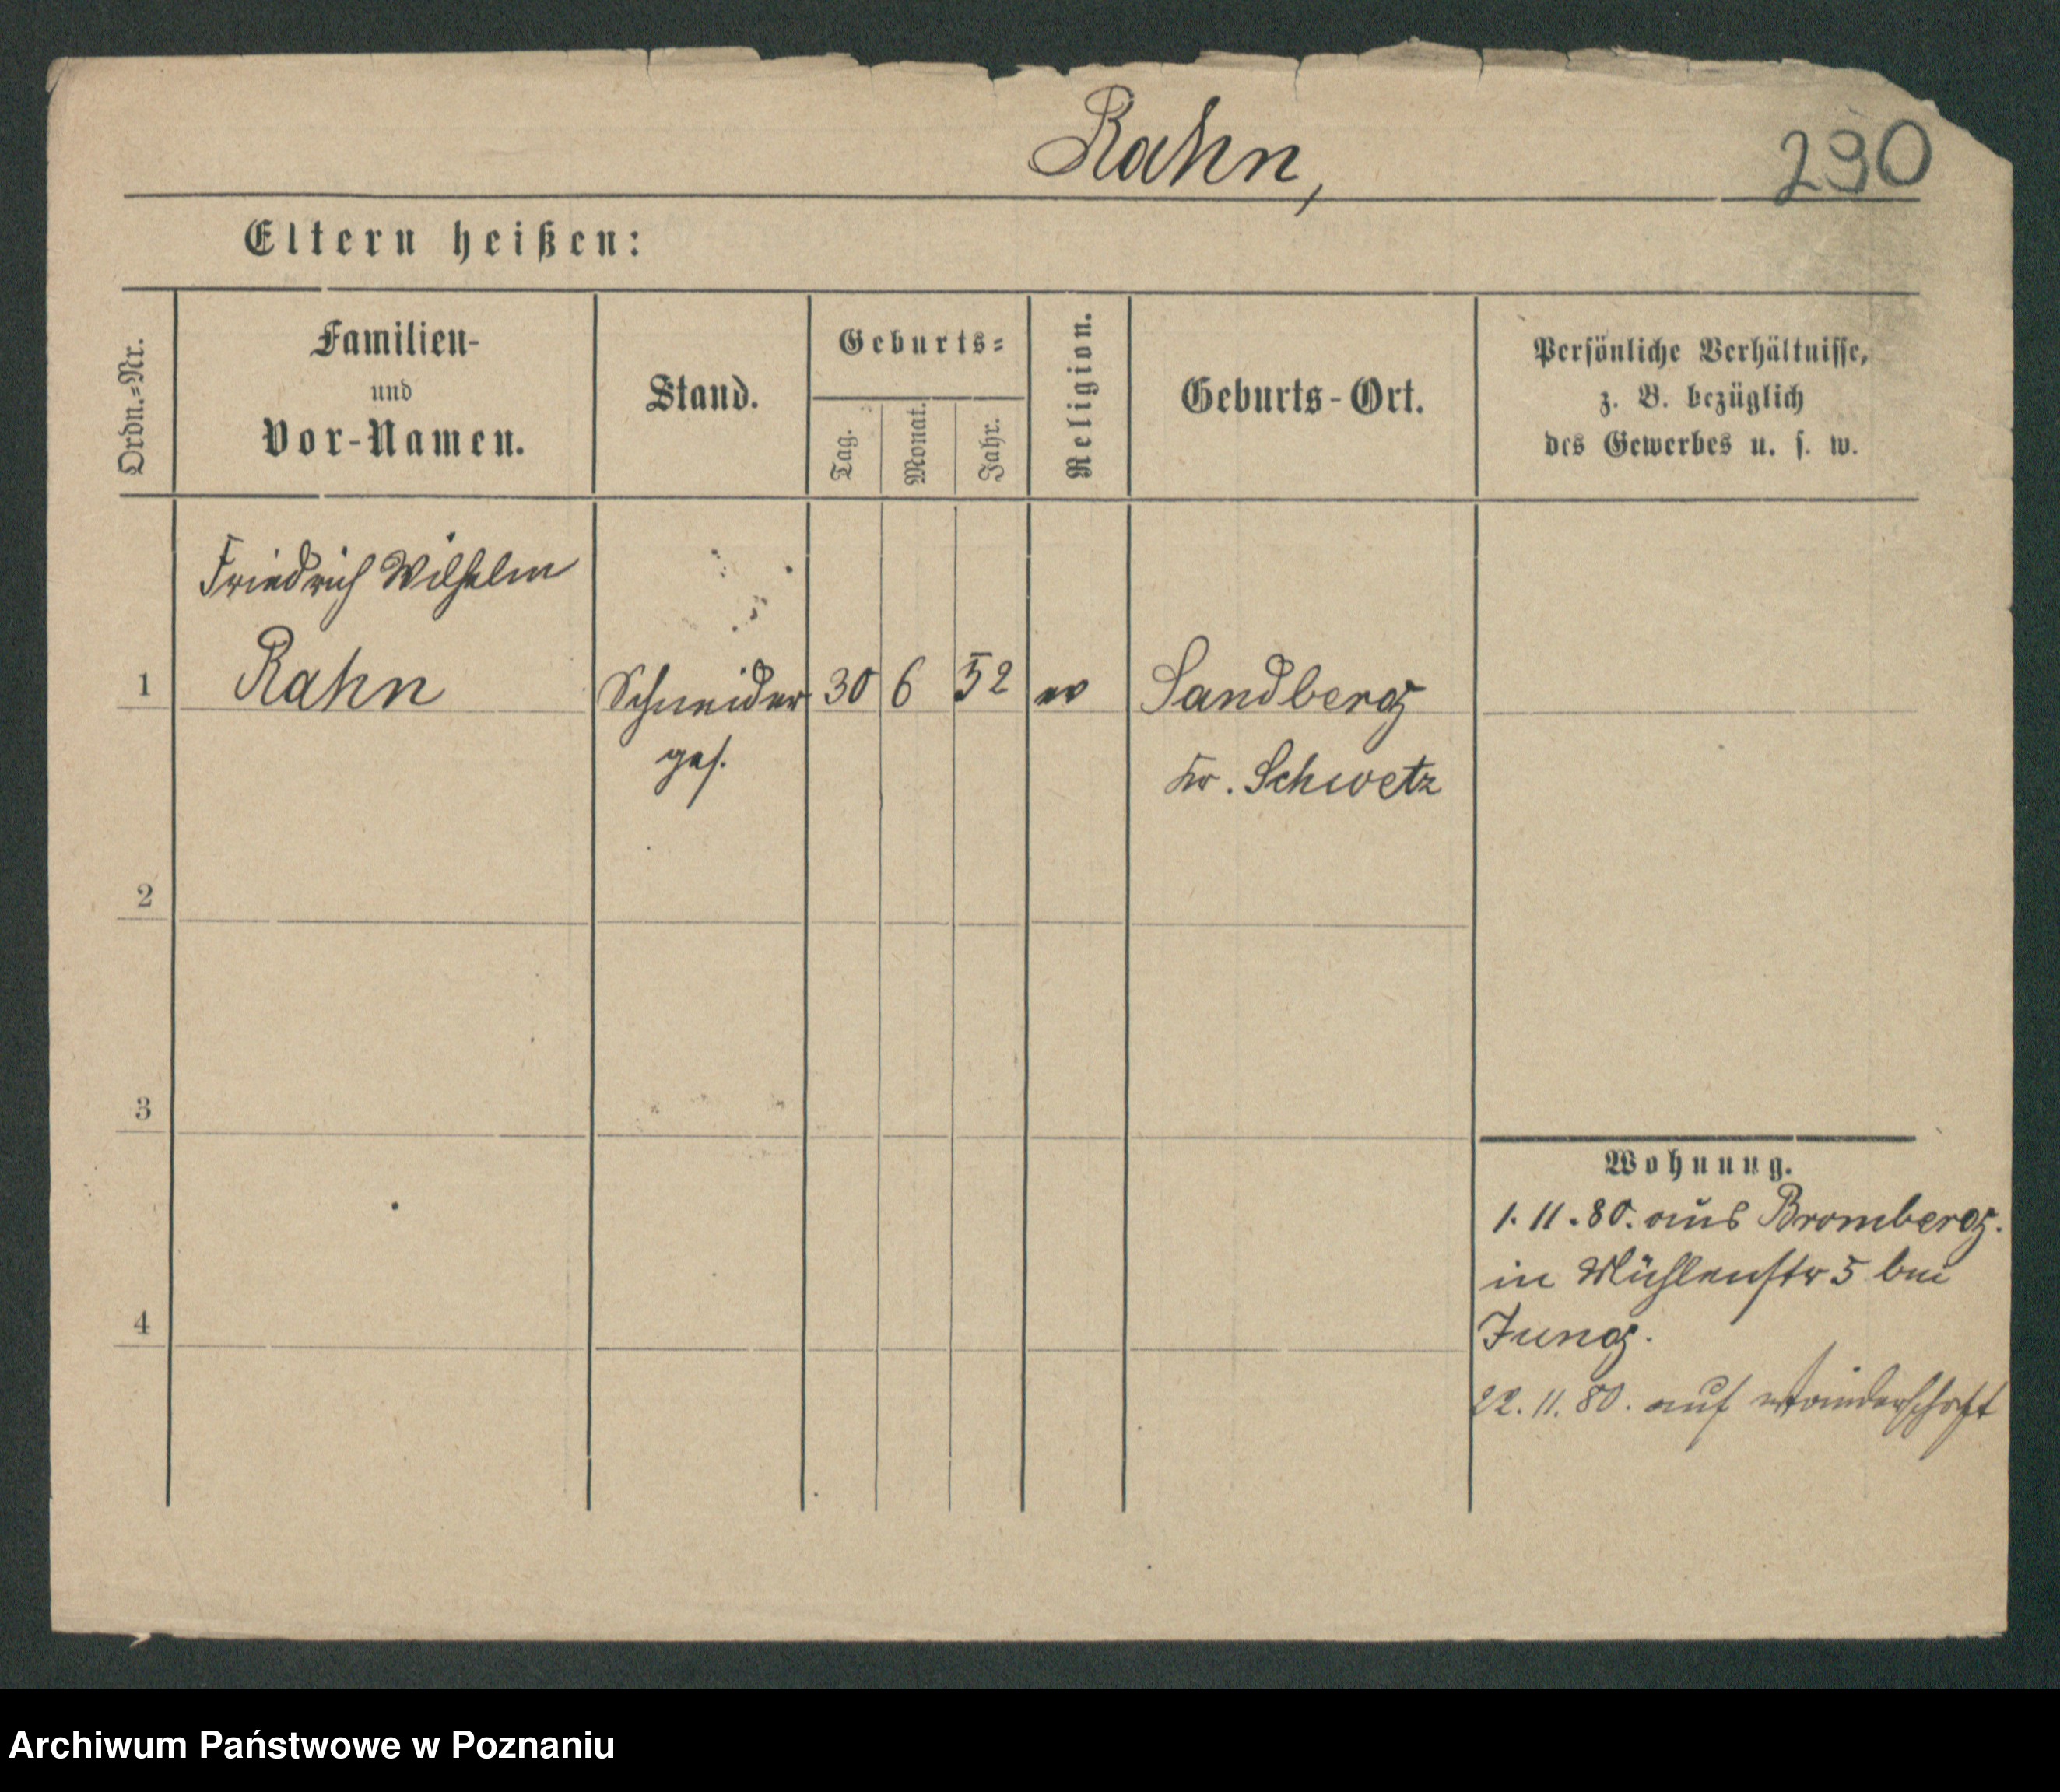 Rahn,
290
Eltern heißen:
Ordn.=Nr.
Familien-
und
Vor-Namen.
Stand.
Geburts=
Tag.
Monat.
Jahr.
Religion.
Geburts-Ort.
Persönliche Verhältnisse,
z. B. bezüglich
des Gewerbes u. s. w.
Friedrich Wilhelm
1 Rahn Schneider 30 6 52 ev Sandberg
ges. Kr. Schwetz
2
3
Wohnung.
1. 11. 80. aus Bromberg.
in Mühlenstr 5 bei
4
Jung.
22. 11. 80. auf Wanderschaft
Archiwum Państwowe w Poznaniu